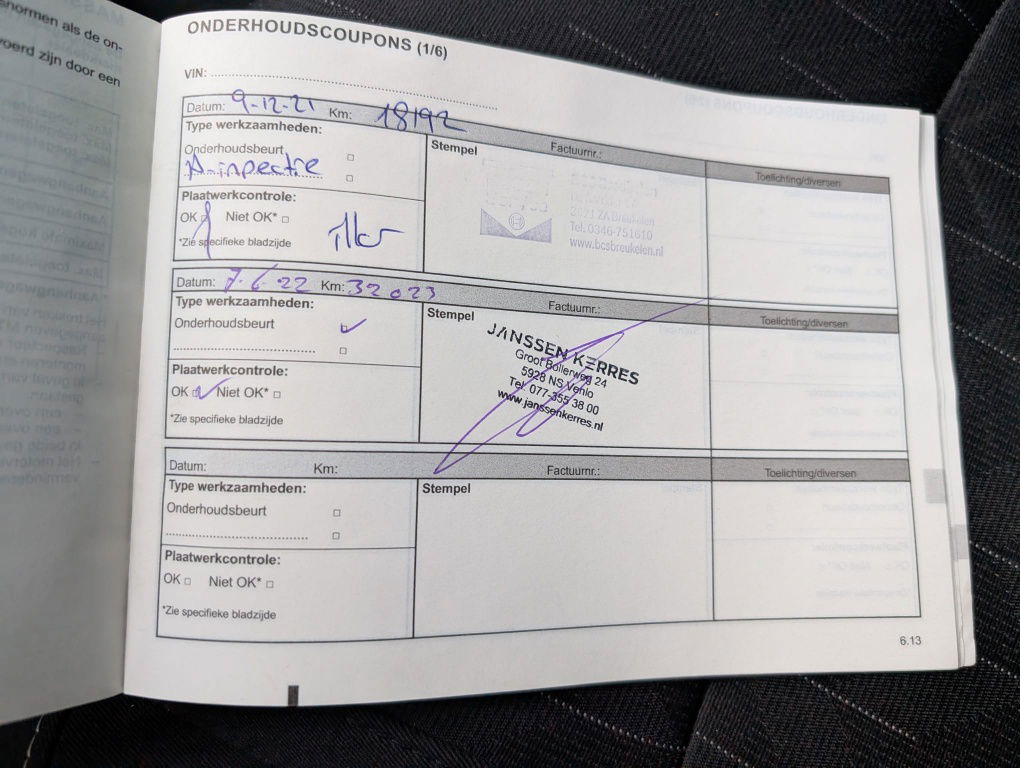 normen als de on-
oerd zijn door een
ONDERHOUDSCOUPONS (1/6)
VIN:
Datum: 9-12-21 Km: 18192
Factuurnr.:
Toelichting/diversen
Type werkzaamheden:
Stempel
Onderhoudsbeurt
A-inpectie
Plaatwerkcontrole:
OK Niet OK*
*Zie specifieke bladzijde
2621 ZA Breukelen
Tel. 0346-751610
www.bcsbreukelen.nl
Datum: 7-6-22 Km: 32023
Factuurnr.:
Toelichting/diversen
Type werkzaamheden:
Stempel
Onderhoudsbeurt
Plaatwerkcontrole:
OK Niet OK*
*Zie specifieke bladzijde
JANSSEN KERRES
Groot Bollerweg 24
5928 NS Venlo
Tel. 077-355 38 00
www.janssenkerres.nl
Datum: Km:
Factuurnr.:
Toelichting/diversen
Type werkzaamheden:
Stempel
Onderhoudsbeurt
Plaatwerkcontrole:
OK Niet OK*
*Zie specifieke bladzijde
6.13